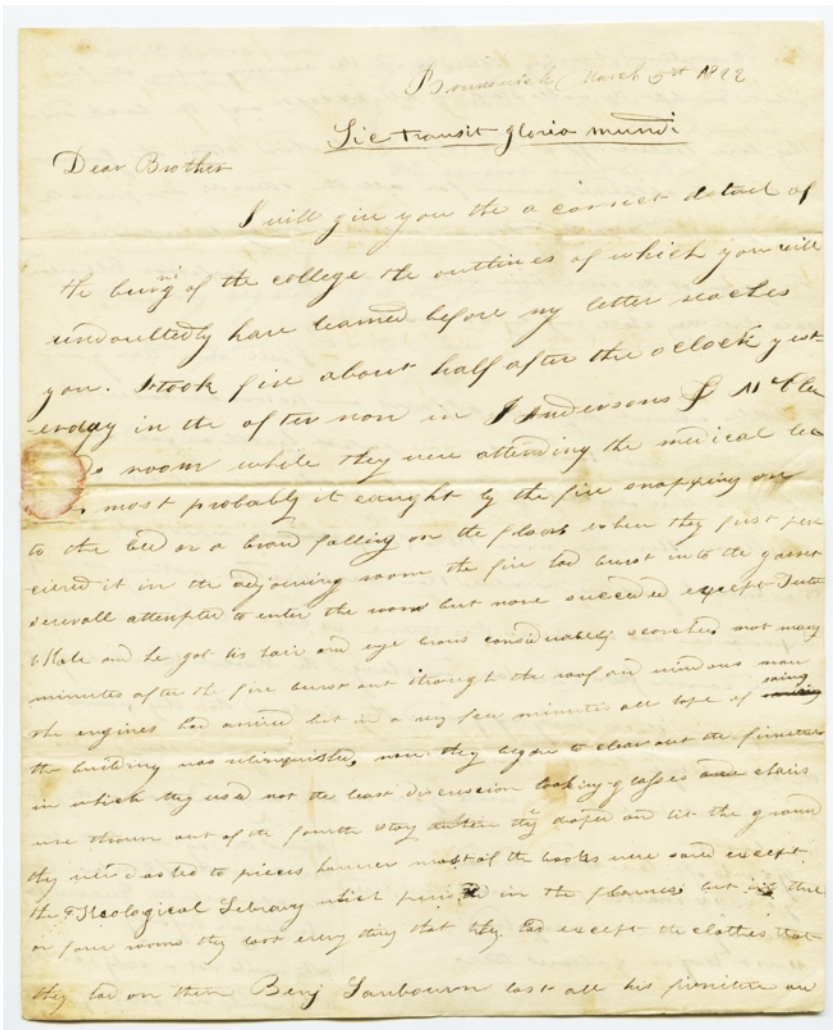 Brunswick March 5th 1822
Sic transit gloria mundi
Dear Brother
I will give you the a correct detail of
the burnig of the college the outlines of which you will
undoubtedly have learned before my letter reaches
you. It took fire about half after thre oclock yest-
-erday in the after noon in J Andersons & McCle
s room while they were attending the medical lec
most probably it caught by the fire snapping on
to the bed or a brand falling on the floor when they first per
cieved it in the adjoining room the fire had burst into the garret
severall attempted to enter the room but none succeeded except Tuto
r Hale and he got his hair and eye brows considerably scorched not many
minutes after the fire burst out through the roof and windows now
the engines had arrived but in a very few minutes all hope of saving
the building was relinquished, now they began to clear out the furniture
in which they used not the least discression looking-glasses and chairs
were thrown out of the fourth story when they droped and hit the ground
they were dashed to pieces however most of the books were saved except
the Theological Library which perished in the flames but in three
or four rooms they lost every thing that they had except the clothes that
they had on them Benj Sanbourn lost all his furniture and